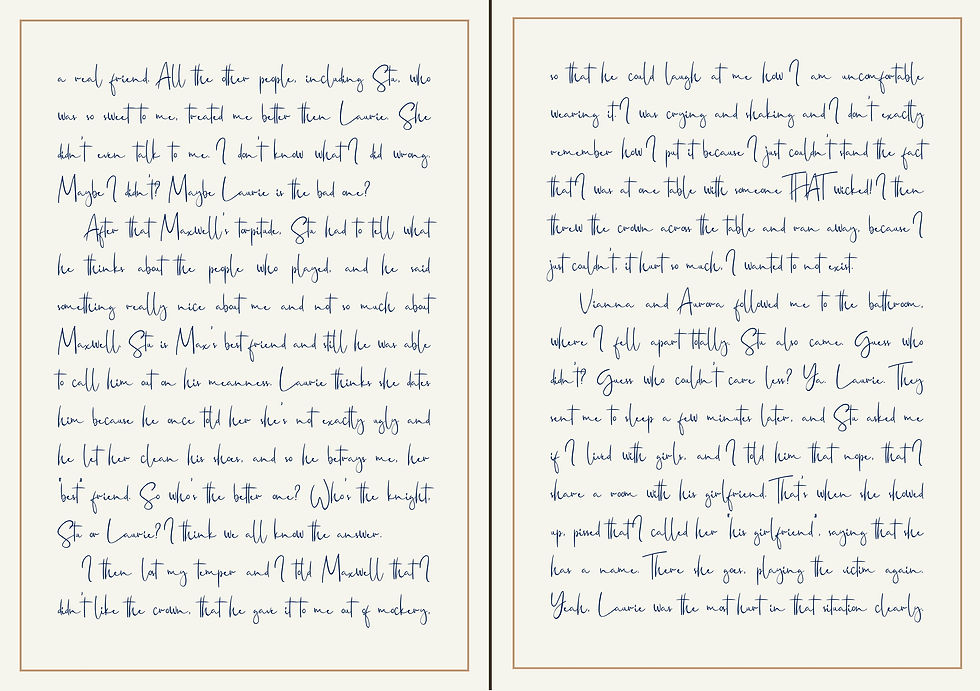 a real friend. All the other people, including Stu, who
was so sweet to me, treated me better then Laurie. She
didn't even talk to me. I don't know what I did wrong.
Maybe I didn't? Maybe Laurie is the bad one?
After that Maxwell's torpitude, Stu had to tell what
he thinks about the people who played, and he said
something really nice about me and not so much about
Maxwell. Stu is Max's best friend and still he was able
to call him out on his meanness. Laurie thinks she dates
him because he once told her she's not exactly ugly and
he let her clean his shoes, and so he betrays me, her
"best" friend. So who's the better one? Who's the knight,
Stu or Laurie? I think we all know the answer.
I then lost my temper and I told Maxwell that I
didn't like the crown, that he gave it to me out of mockery,
so that he could laugh at me how I am uncomfortable
wearing it. I was crying and shaking and I don't exactly
remember how I put it because I just couldn't stand the fact
that I was at one table with someone THAT wicked! I then
threw the crown across the table and ran away, because I
just couldn't, it hurt so much, I wanted to not exist.
Vianna and Aurora followed me to the bathroom,
where I fell apart totally. Stu also came. Guess who
didn't? Guess who couldn't care less? Ya. Laurie. They
sent me to sleep a few minutes later, and Stu asked me
if I lived with girls, and I told him that nope, that I
share a room with his girlfriend. That's when she showed
up, pissed that I called her "his girlfriend", saying that she
has a name. There she goes, playing the victim again.
Yeah, Laurie was the most hurt in that situation clearly.